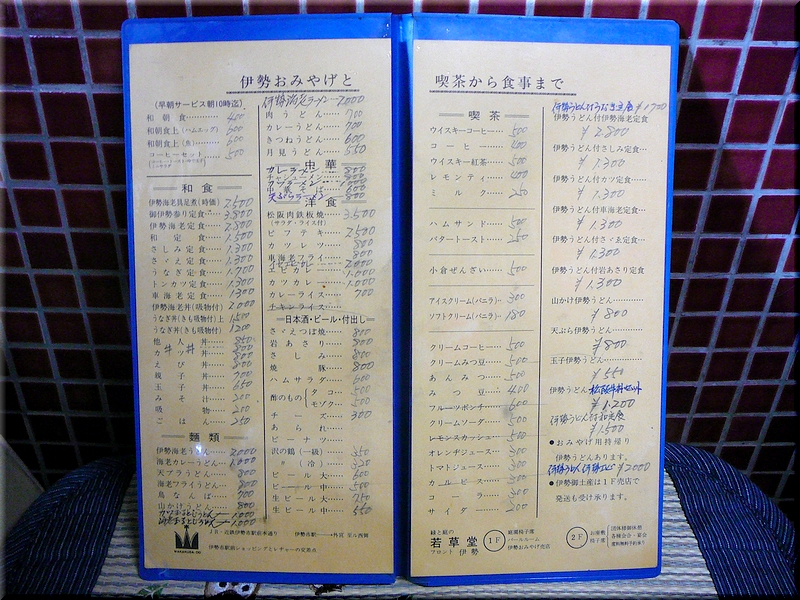 伊勢おみやげと
(早朝サービス朝10時迄)
和朝食…… 400
和朝食上(ハムエッグ) 600
和朝食上(魚) 600
コーヒーセット…… 500
和食
伊勢海老具足煮(時価) 7,500
御伊勢参り定食… 3,800
伊勢海老定食… 2,800
和定食… 1,500
さしみ定食… 1,300
さざえ定食… 1,300
うなぎ定食… 1,700
トンカツ定食… 1,300
車海老定食… 1,300
伊勢海老丼(吸物付) 2,000
うなぎ丼(きも吸物付)上 1,500
うなぎ丼(きも吸物付) 1,200
他人丼…… 850
カツ丼…… 800
えび丼…… 800
親子丼…… 700
玉子丼…… 650
みそ汁…… 200
吸物…… 200
ごはん…… 250
麺類
伊勢海老うどん… 2,000
海老カレーうどん… 1,000
天プラうどん… 800
海老フライうどん… 800
鳥なんば…… 700
山かけうどん… 800
WAKAKUSA-DO
伊勢海老ラーメン 2000
肉うどん…… 700
カレーうどん…… 700
きつねうどん…… 600
月見うどん…… 550
中華
カレーラーメン 800
チャシューメン… 800
中華そば… 600
天ぷらラーメン 800
洋食
松阪肉鉄板焼… 3,500
(サラダ・ライス付)
ビフテキ…… 2,500
カツレツ…… 800
車海老フライ… 800
エビカレー…… 1,000
カツカレー…… 1,000
カレーライス…… 700
チキンライス
日本酒・ビール・付出し
さざえつぼ焼… 800
岩あさり…… 800
さしみ…… 800
焼豚…… 800
ハムサラダ…… 600
酢のもの{タコ…… 500
モゾク… 500
チーズ…… 300
あられ……
ピーナツ……
沢の鶴(一級) 350
〃(冷) 320
ビール大…… 600
ビール中…… 500
生ビール大…… 750
生ビール中…… 550
JR・近鉄伊勢市駅前本通り 伊勢市駅──外宮 至ル西側
伊勢市駅前ショッピングとレヂャーの交差点
喫茶から食事まで
喫茶
ウイスキーコーヒー… 500
コーヒー…… 400
ウイスキー紅茶… 500
レモンティ…… 400
ミルク…… 250
ハムサンド…… 500
バタートースト… 250
小倉ぜんざい… 500
アイスクリーム(バニラ)… 300
ソフトクリーム(バニラ)… 180
クリームコーヒー… 500
クリームみつ豆… 500
あんみつ…… 500
みつ豆…… 400
フルーツポンチ… 600
クリームソーダ… 500
レモンスカッシュ… 500
オレンヂジュース… 300
トマトジュース… 300
カルピス…… 300
コーラ…… 300
サイダー…… 200
緑と庭の
若草堂
フロント 伊勢
1F
庭園椅子席
パールルーム
伊勢おみやげ売店
¥1,700
伊勢うどん付伊勢海老定食
¥2,800
伊勢うどん付さしみ定食…
¥1,300
伊勢うどん付カツ定食…
¥1,300
伊勢うどん付車海老定食
¥1,300
伊勢うどん付さゞゑ定食…
¥1,300
伊勢うどん付岩あさり定食
¥1,300
山かけ伊勢うどん……
¥800
天ぷら伊勢うどん……
¥800
玉子伊勢うどん……
¥550
伊勢うどん松阪牛丼セット
¥1,200
伊勢うどん付和定食
¥1,500
●おみやげ用持帰り
伊勢うどんあります。
¥2000
●伊勢御土産は1F売店で
発送も受承ります。
2F
お座敷
椅子席
団体様御休憩
各種会合・宴会